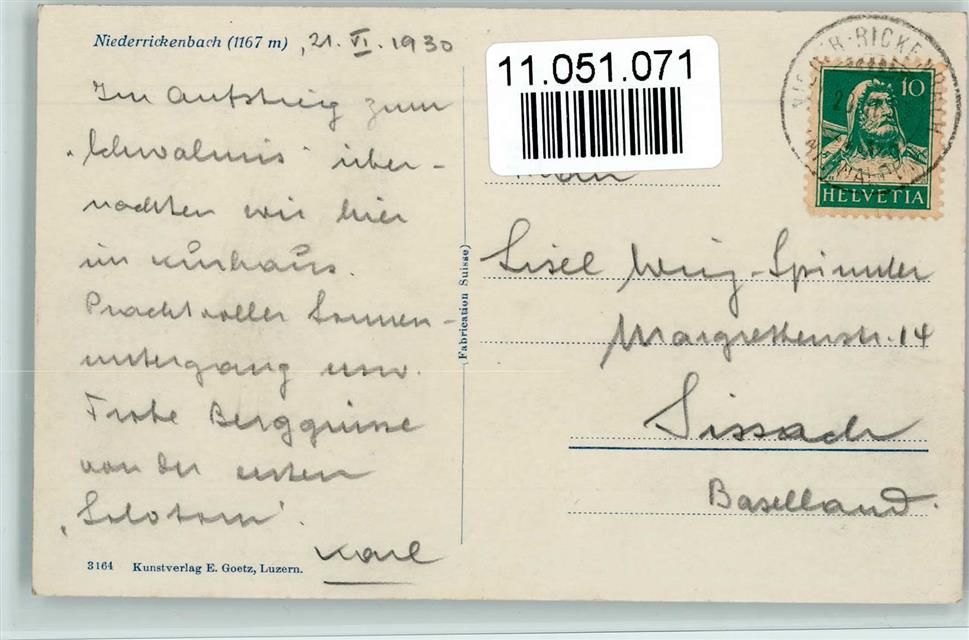 Niederrickenbach (1167 m) , 21. VI. 1930
Im Aufstieg zum
"Schwalmis" über-
nachten wir hier
im Kurhaus.
Prachtvoller Sonnen-
untergang usw.
Frohe Berggrüsse
von der ersten
"Solotour".
Karl
3164 Kunstverlag E. Goetz, Luzern.
(Fabrication Suisse)
11.051.071
10
HELVETIA
Lisel Spinnler
Margrethenstr. 14
Sissach
Baselland.